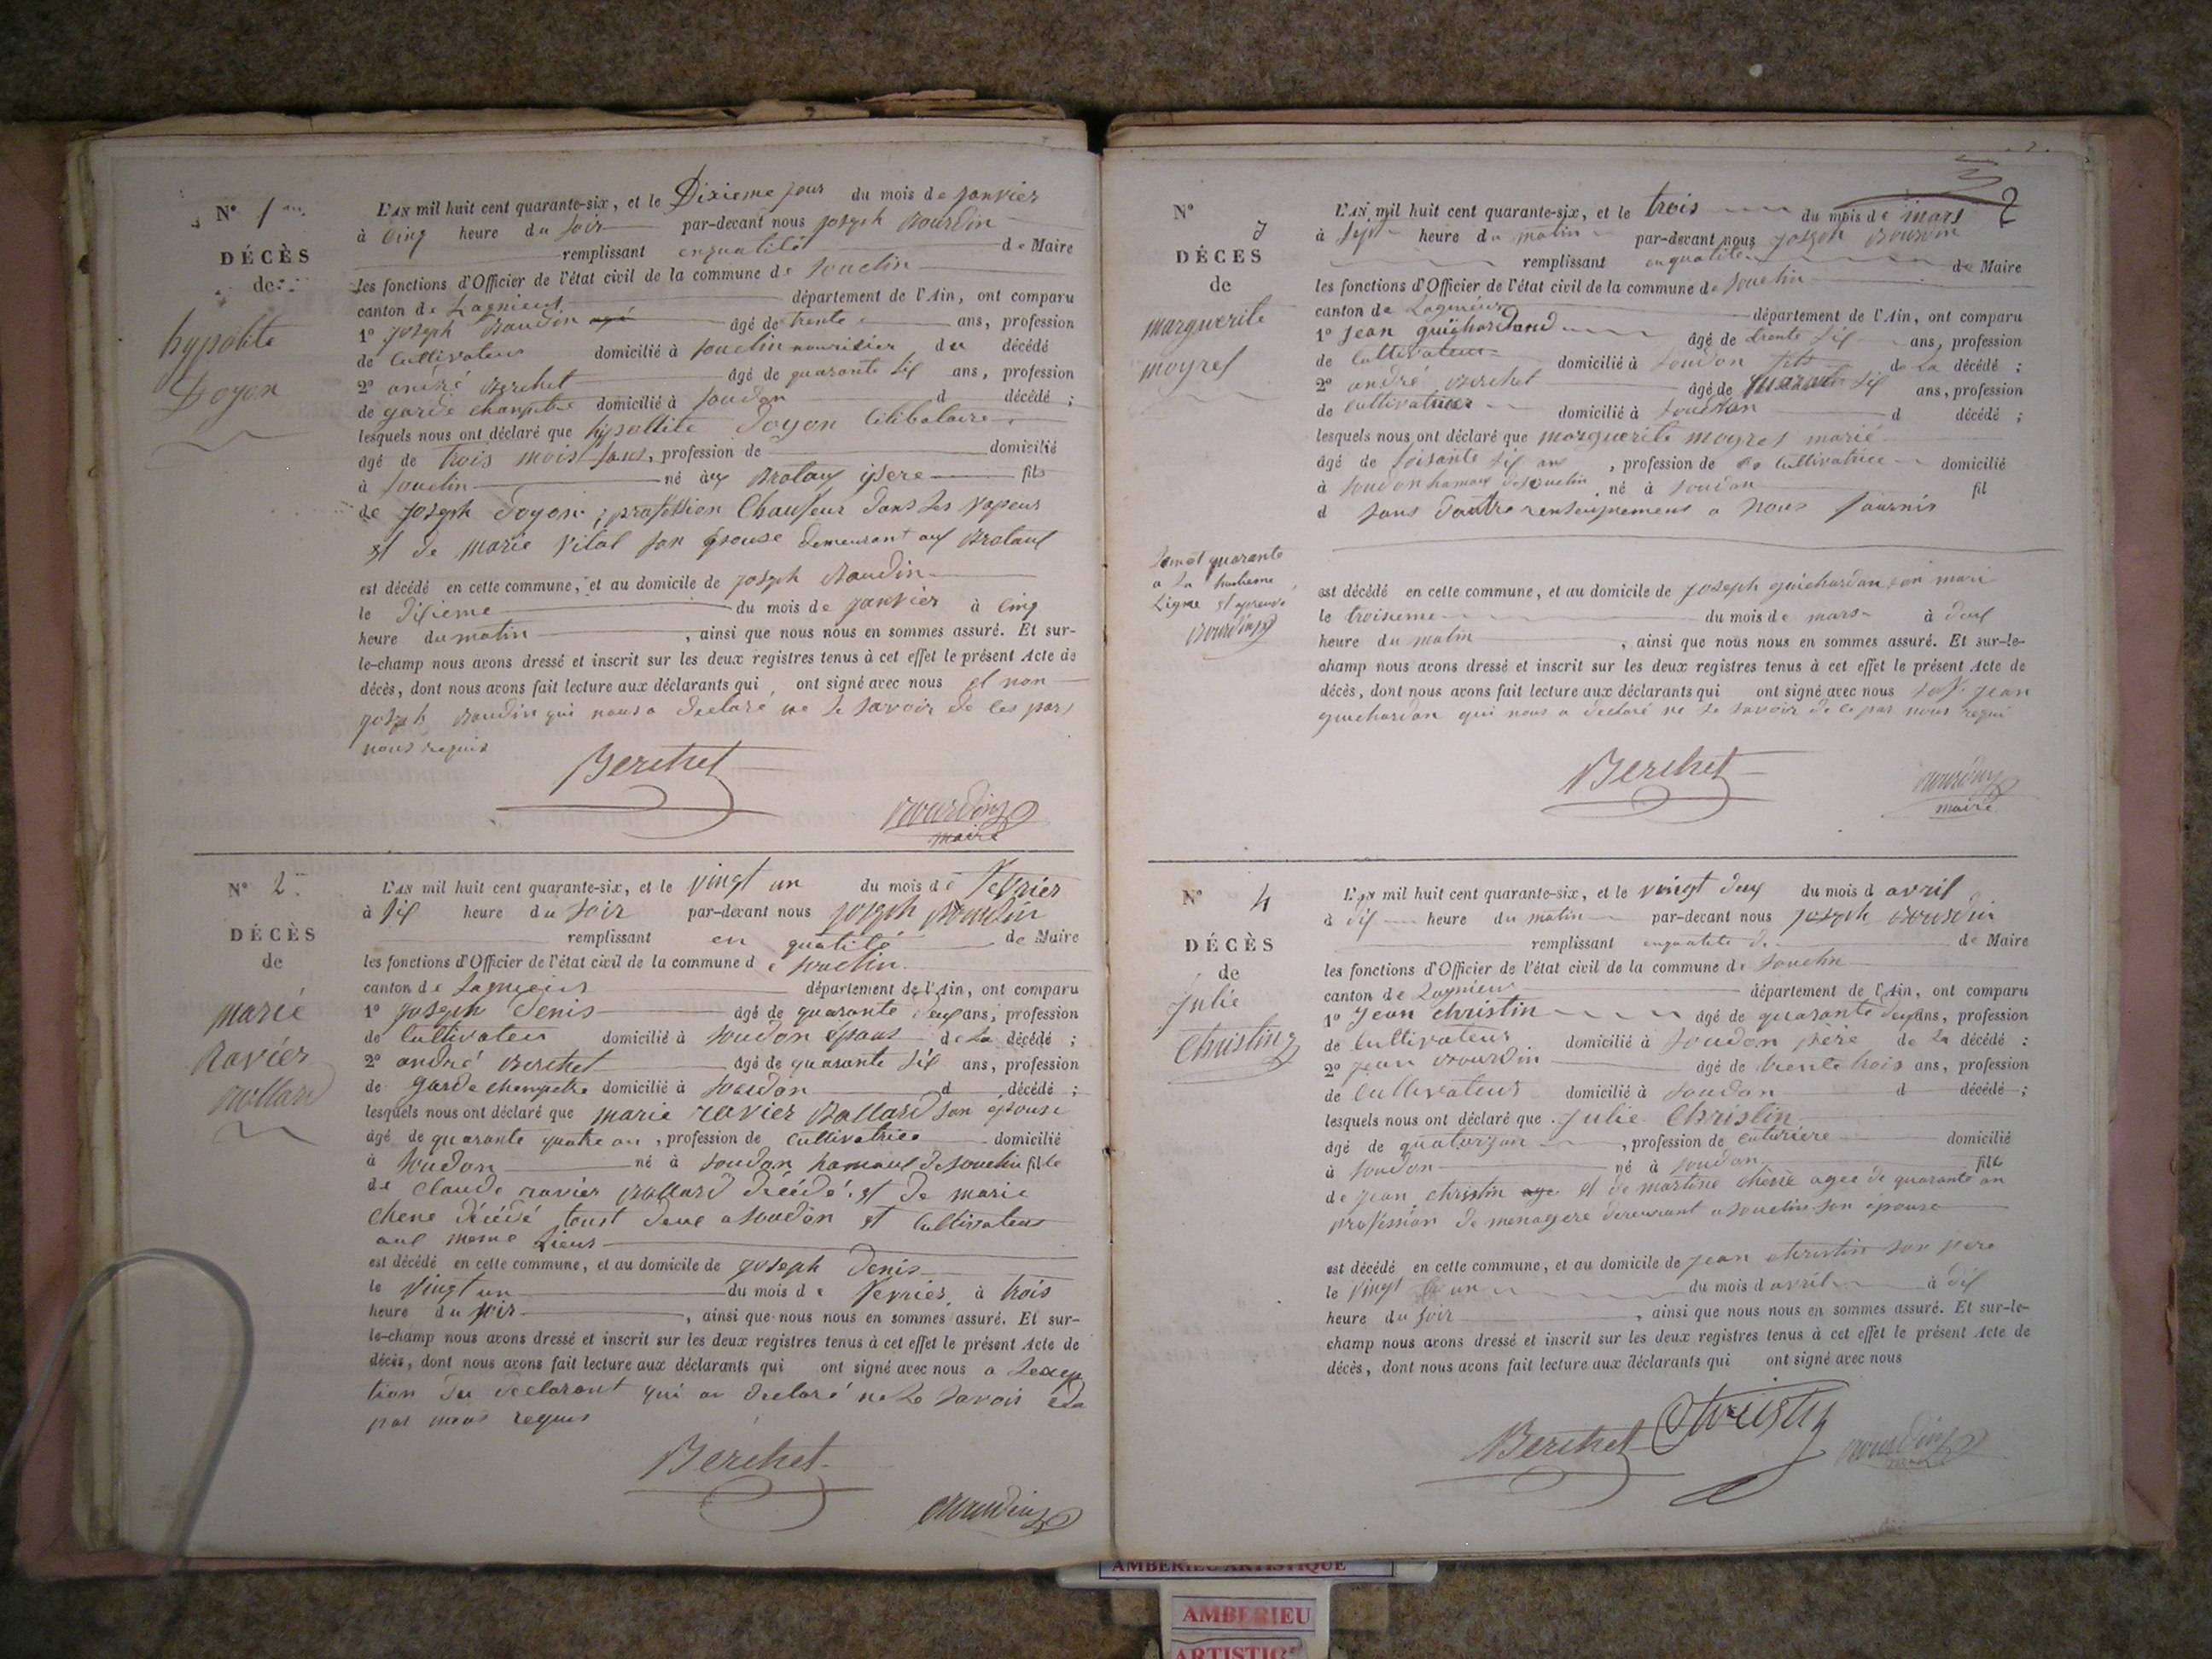 N° 1
DÉCÈS
de
hypolite
Doyon
L'AN mil huit cent quarante-six, et le Dixieme jour du mois de janvier
à cinq heure du soir par-devant nous joseph Bourdin
remplissant enqualité de Maire
les fonctions d'Officier de l'état civil de la commune de souclin
canton de Lagnieux département de l'Ain, ont comparu
1° joseph Baudin âgé de trente ans, profession
de Cultivateur domicilié à souclin nourisier du décédé
2° andré Berchet âgé de quarante six ans, profession
de garde champetre domicilié à soudon d décédé ;
lesquels nous ont déclaré que hypollite Doyon Célibataire
âgé de trois mois, profession de domicilié
à souclin né aux Brotaux isere fils
de joseph Doyon ; profession Chaufeur dans les vapeurs
et de marie vital son épouse demeurant aux Brotaux
est décédé en cette commune, et au domicile de joseph Baudin
le dixieme du mois de janvier à cinq
heure du matin , ainsi que nous nous en sommes assuré. Et sur-
le-champ nous avons dressé et inscrit sur les deux registres tenus à cet effet le présent Acte de
décès, dont nous avons fait lecture aux déclarants qui ont signé avec nous et non
joseph Baudin qui nous a declaré ne le savoir de ces par
nous requis
Berchet
Bourdin
maire
N° 2
DÉCÈS
de
marié
Ravier
Bollard
L'AN mil huit cent quarante-six, et le vingt un du mois de fevrier
à six heure du soir par-devant nous joseph Bourdin
remplissant en qualité de Maire
les fonctions d'Officier de l'état civil de la commune de souclin
canton de Lagnieux département de l'Ain, ont comparu
1° joseph Denis âgé de quarante deux ans, profession
de Cultivateur domicilié à soudon époux de la décédé ;
2° andré Berchet âgé de quarante six ans, profession
de garde champetre domicilié à soudon d décédé ;
lesquels nous ont déclaré que marie ravier Bollard son épouse
âgé de quarante quatre an , profession de Cultivatrice domicilié
à soudon né à soudon hamaux de souclin fille
de Claude ravier Bollard décédé et de marie
chene décédé tout deux a soudon et Cultivateur
aux meme Lieux
est décédé en cette commune, et au domicile de joseph Denis
le vingt un du mois de fevrier à trois
heure du soir , ainsi que nous nous en sommes assuré. Et sur-
le-champ nous avons dressé et inscrit sur les deux registres tenus à cet effet le présent Acte de
décès, dont nous avons fait lecture aux déclarants qui ont signé avec nous a Lexep
tion du declarant qui a declaré ne le savoir
par nous requis
Berchet
Bourdin
2
N° 3
DÉCÈS
de
marguerite
moyret
L'AN mil huit cent quarante-six, et le trois du mois de mars
à sept heure du matin par-devant nous joseph Bourdin
remplissant enqualité de Maire
les fonctions d'Officier de l'état civil de la commune de souclin
canton de Lagnieux département de l'Ain, ont comparu
1° jean guichardand âgé de trente six ans, profession
de Cultivateur domicilié à soudon fils de La décédé ;
2° andré Berchet âgé de quarante six ans, profession
de Cultivateur domicilié à soudon d décédé ;
lesquels nous ont déclaré que marguerite moyret marié
âgé de soisante six ans , profession de Cultivatrice domicilié
à soudon hamaux de souclin , né à soudon fil
d sans dautre renseignement a nous fournis
Le mot quarante
a La huitieme
Ligne et aprouvé
Bourdin
est décédé en cette commune, et au domicile de joseph guichardan son mari
le troisieme du mois de mars à deux
heure du matin , ainsi que nous nous en sommes assuré. Et sur-le-
champ nous avons dressé et inscrit sur les deux registres tenus à cet effet le présent Acte de
décès, dont nous avons fait lecture aux déclarants qui ont signé avec nous jean
guichardan qui nous a declaré ne le savoir de ce par nous requi
Berchet
Bourdin
maire
N° 4
DÉCÈS
de
julie
Christin
L'AN mil huit cent quarante-six, et le vingt deux du mois d avril
à dix heure du matin par-devant nous joseph Bourdin
remplissant enqualité de de Maire
les fonctions d'Officier de l'état civil de la commune de souclin
canton de Lagnieux département de l'Ain, ont comparu
1° jean christin âgé de quarante deux ans, profession
de Cultivateur domicilié à soudon père de La décédé ;
2° jean Bourdin âgé de trente trois ans, profession
de Cultivateur domicilié à soudon d décédé ;
lesquels nous ont déclaré que julie Christin
âgé de quatorzan , profession de couturiere domicilié
à soudon né à soudon fille
de jean christin et de martine chene agee de quarante an
profession de menagere demeurant a souclin son épouse
est décédé en cette commune, et au domicile de jean christin son pere
le vingt un du mois d avril à dix
heure du soir , ainsi que nous nous en sommes assuré. Et sur-le-
champ nous avons dressé et inscrit sur les deux registres tenus à cet effet le présent Acte de
décès, dont nous avons fait lecture aux déclarants qui ont signé avec nous
Berchet Christin
Bourdin
AMBERIEU ARTISTIQUE
AMBERIEU
ARTISTIQ